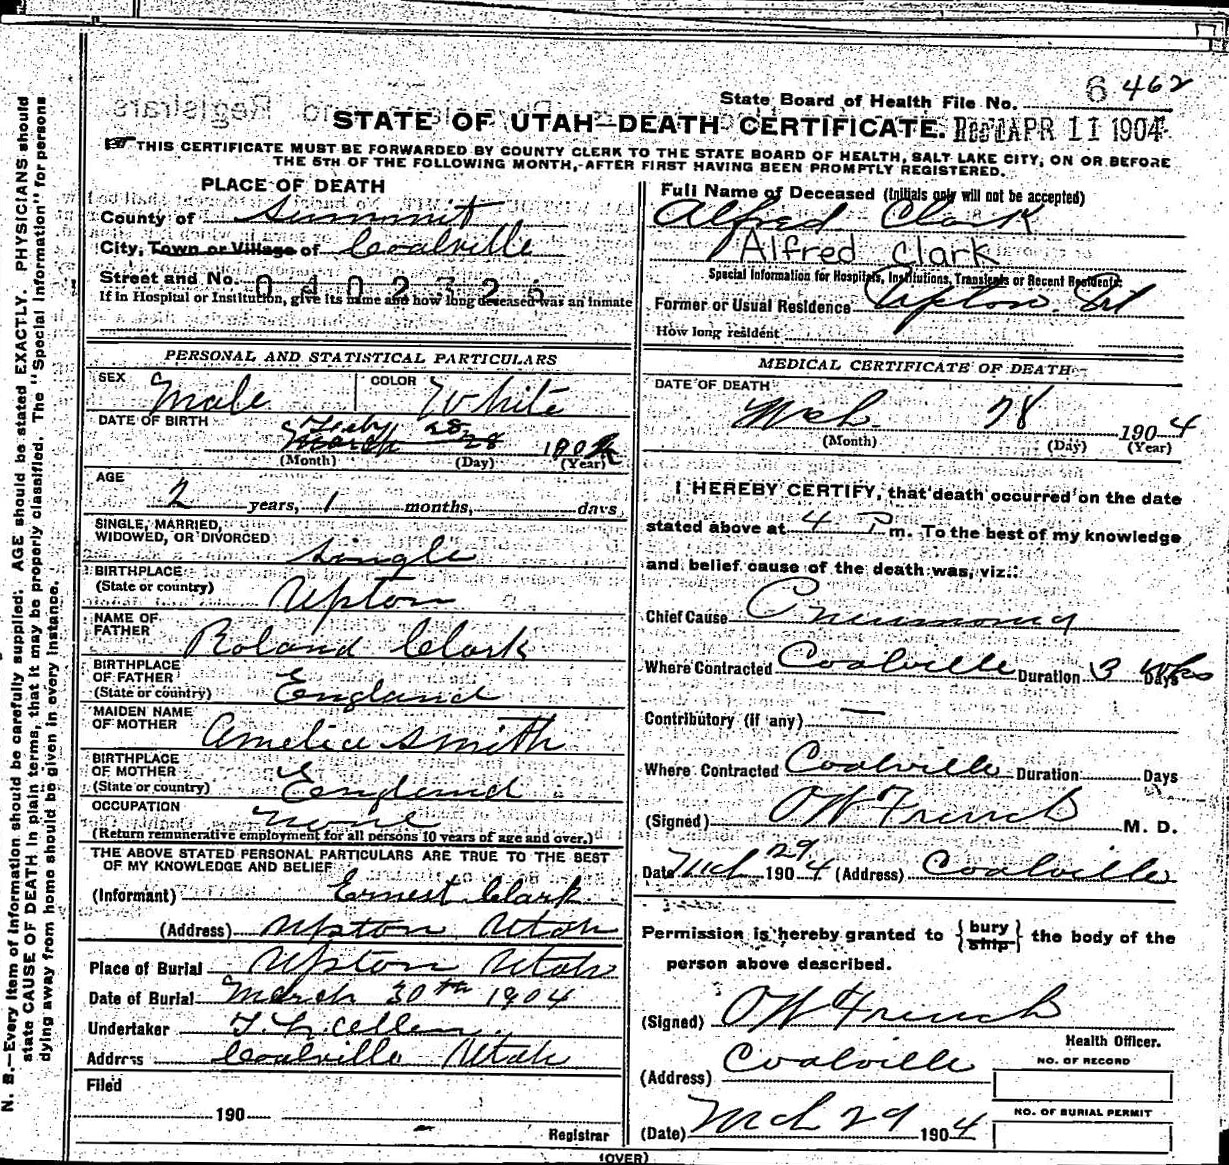 State Board of Health File No. 6 462
STATE OF UTAH—DEATH CERTIFICATE. Rec'd APR 11 1904
THIS CERTIFICATE MUST BE FORWARDED BY COUNTY CLERK TO THE STATE BOARD OF HEALTH, SALT LAKE CITY, ON OR BEFORE
THE 5TH OF THE FOLLOWING MONTH, AFTER FIRST HAVING BEEN PROMPTLY REGISTERED.
PLACE OF DEATH
County of Summit
City, Town or Village of Coalville
Street and No. 0402325
If in Hospital or Institution, give its name and how long deceased was an inmate
PERSONAL AND STATISTICAL PARTICULARS
SEX Male COLOR White
DATE OF BIRTH Feby 28
March 28 1902
(Month) (Day) (Year)
AGE
2 years, 1 months, days
SINGLE, MARRIED,
WIDOWED, OR DIVORCED Single
BIRTHPLACE
(State or country) Upton
NAME OF
FATHER Roland Clark
BIRTHPLACE
OF FATHER
(State or country) England
MAIDEN NAME
OF MOTHER Amelia Smith
BIRTHPLACE
OF MOTHER
(State or country) England
OCCUPATION none
(Return remunerative employment for all persons 10 years of age and over.)
THE ABOVE STATED PERSONAL PARTICULARS ARE TRUE TO THE BEST
OF MY KNOWLEDGE AND BELIEF
(Informant) Ernest Clark
(Address) Upton Utah
Place of Burial Upton Utah
Date of Burial March 30th 1904
Undertaker
Address Coalville Utah
Filed
190
Registrar
Full Name of Deceased (Initials only will not be accepted)
Alfred Clark
Alfred Clark
Special Information for Hospitals, Institutions, Transients or Recent Residents:
Former or Usual Residence Upton
How long resident
MEDICAL CERTIFICATE OF DEATH
DATE OF DEATH
Mch 28 1904
(Month) (Day) (Year)
I HEREBY CERTIFY, that death occurred on the date
stated above at 4 P m. To the best of my knowledge
and belief cause of the death was, viz.:
Chief Cause Pneumonia
Where Contracted Coalville Duration 3 Wks Days
Contributory (if any) —
Where Contracted Coalville Duration Days
(Signed) O W French M. D.
Date Mch 29 1904 (Address) Coalville
Permission is hereby granted to {bury ship} the body of the
person above described.
(Signed) O W French
Health Officer.
(Address) Coalville
NO. OF RECORD
NO. OF BURIAL PERMIT
(Date) Mch 29 1904
(OVER)
N. B.—Every item of Information should be carefully supplied. AGE should be stated EXACTLY. PHYSICIANS should
state CAUSE OF DEATH in plain terms, that it may be properly classified. The "Special Information" for persons
dying away from home should be given in every instance.